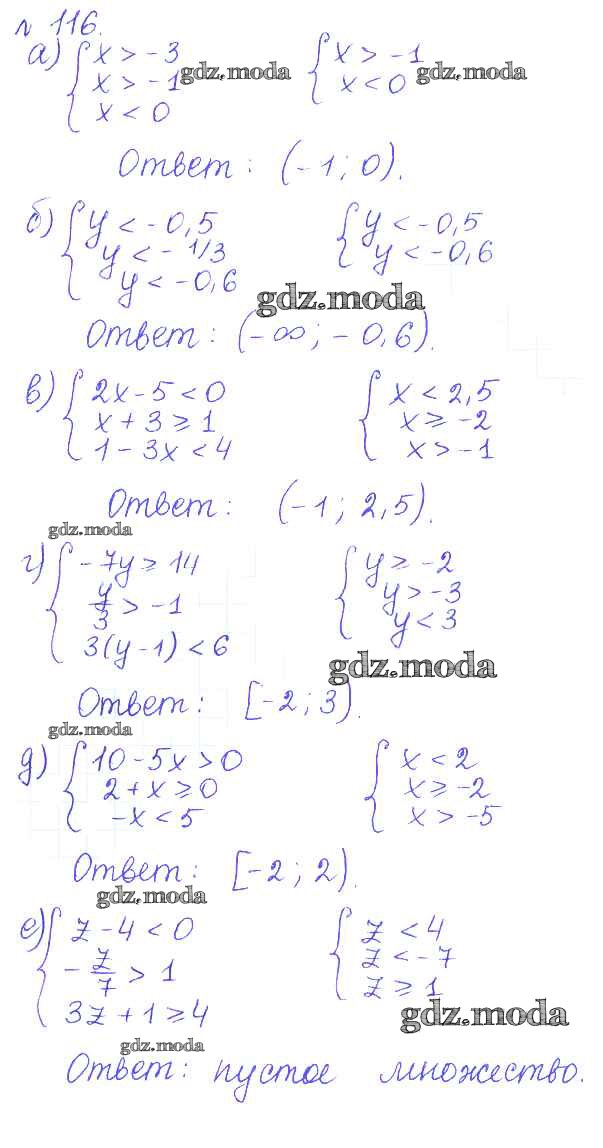 № 116.
а) { x > -3 { x > -1
x > -1 gdz.moda x < 0 gdz.moda
x < 0
Ответ: (-1; 0).
б) { y < -0,5 { y < -0,5
y < -1/3 y < -0,6
y < -0,6
gdz.moda
Ответ: (-∞; -0,6).
в) { 2x - 5 < 0 { x < 2,5
x + 3 ≥ 1 x ≥ -2
1 - 3x < 4 x > -1
Ответ: (-1; 2,5).
gdz.moda
г) { -7y ≥ 14 { y ≥ -2
y/3 > -1 y > -3
3(y-1) < 6 y < 3
gdz.moda
Ответ: [-2; 3).
gdz.moda
д) { 10 - 5x > 0 { x < 2
2 + x ≥ 0 x ≥ -2
-x < 5 x > -5
Ответ: [-2; 2).
gdz.moda
е) { z - 4 < 0 { z < 4
-z/7 > 1 z < -7
3z + 1 ≥ 4 z ≥ 1
gdz.moda
gdz.moda
Ответ: пустое множество.